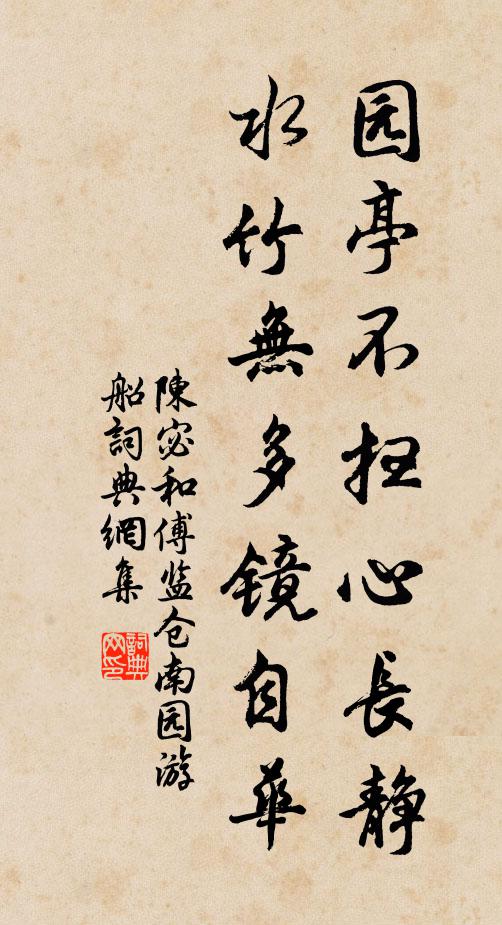 园亭不扫心長静
水竹無多镜自華
陳宓和傅监仓南园游
船詞典網集
詞典
网印